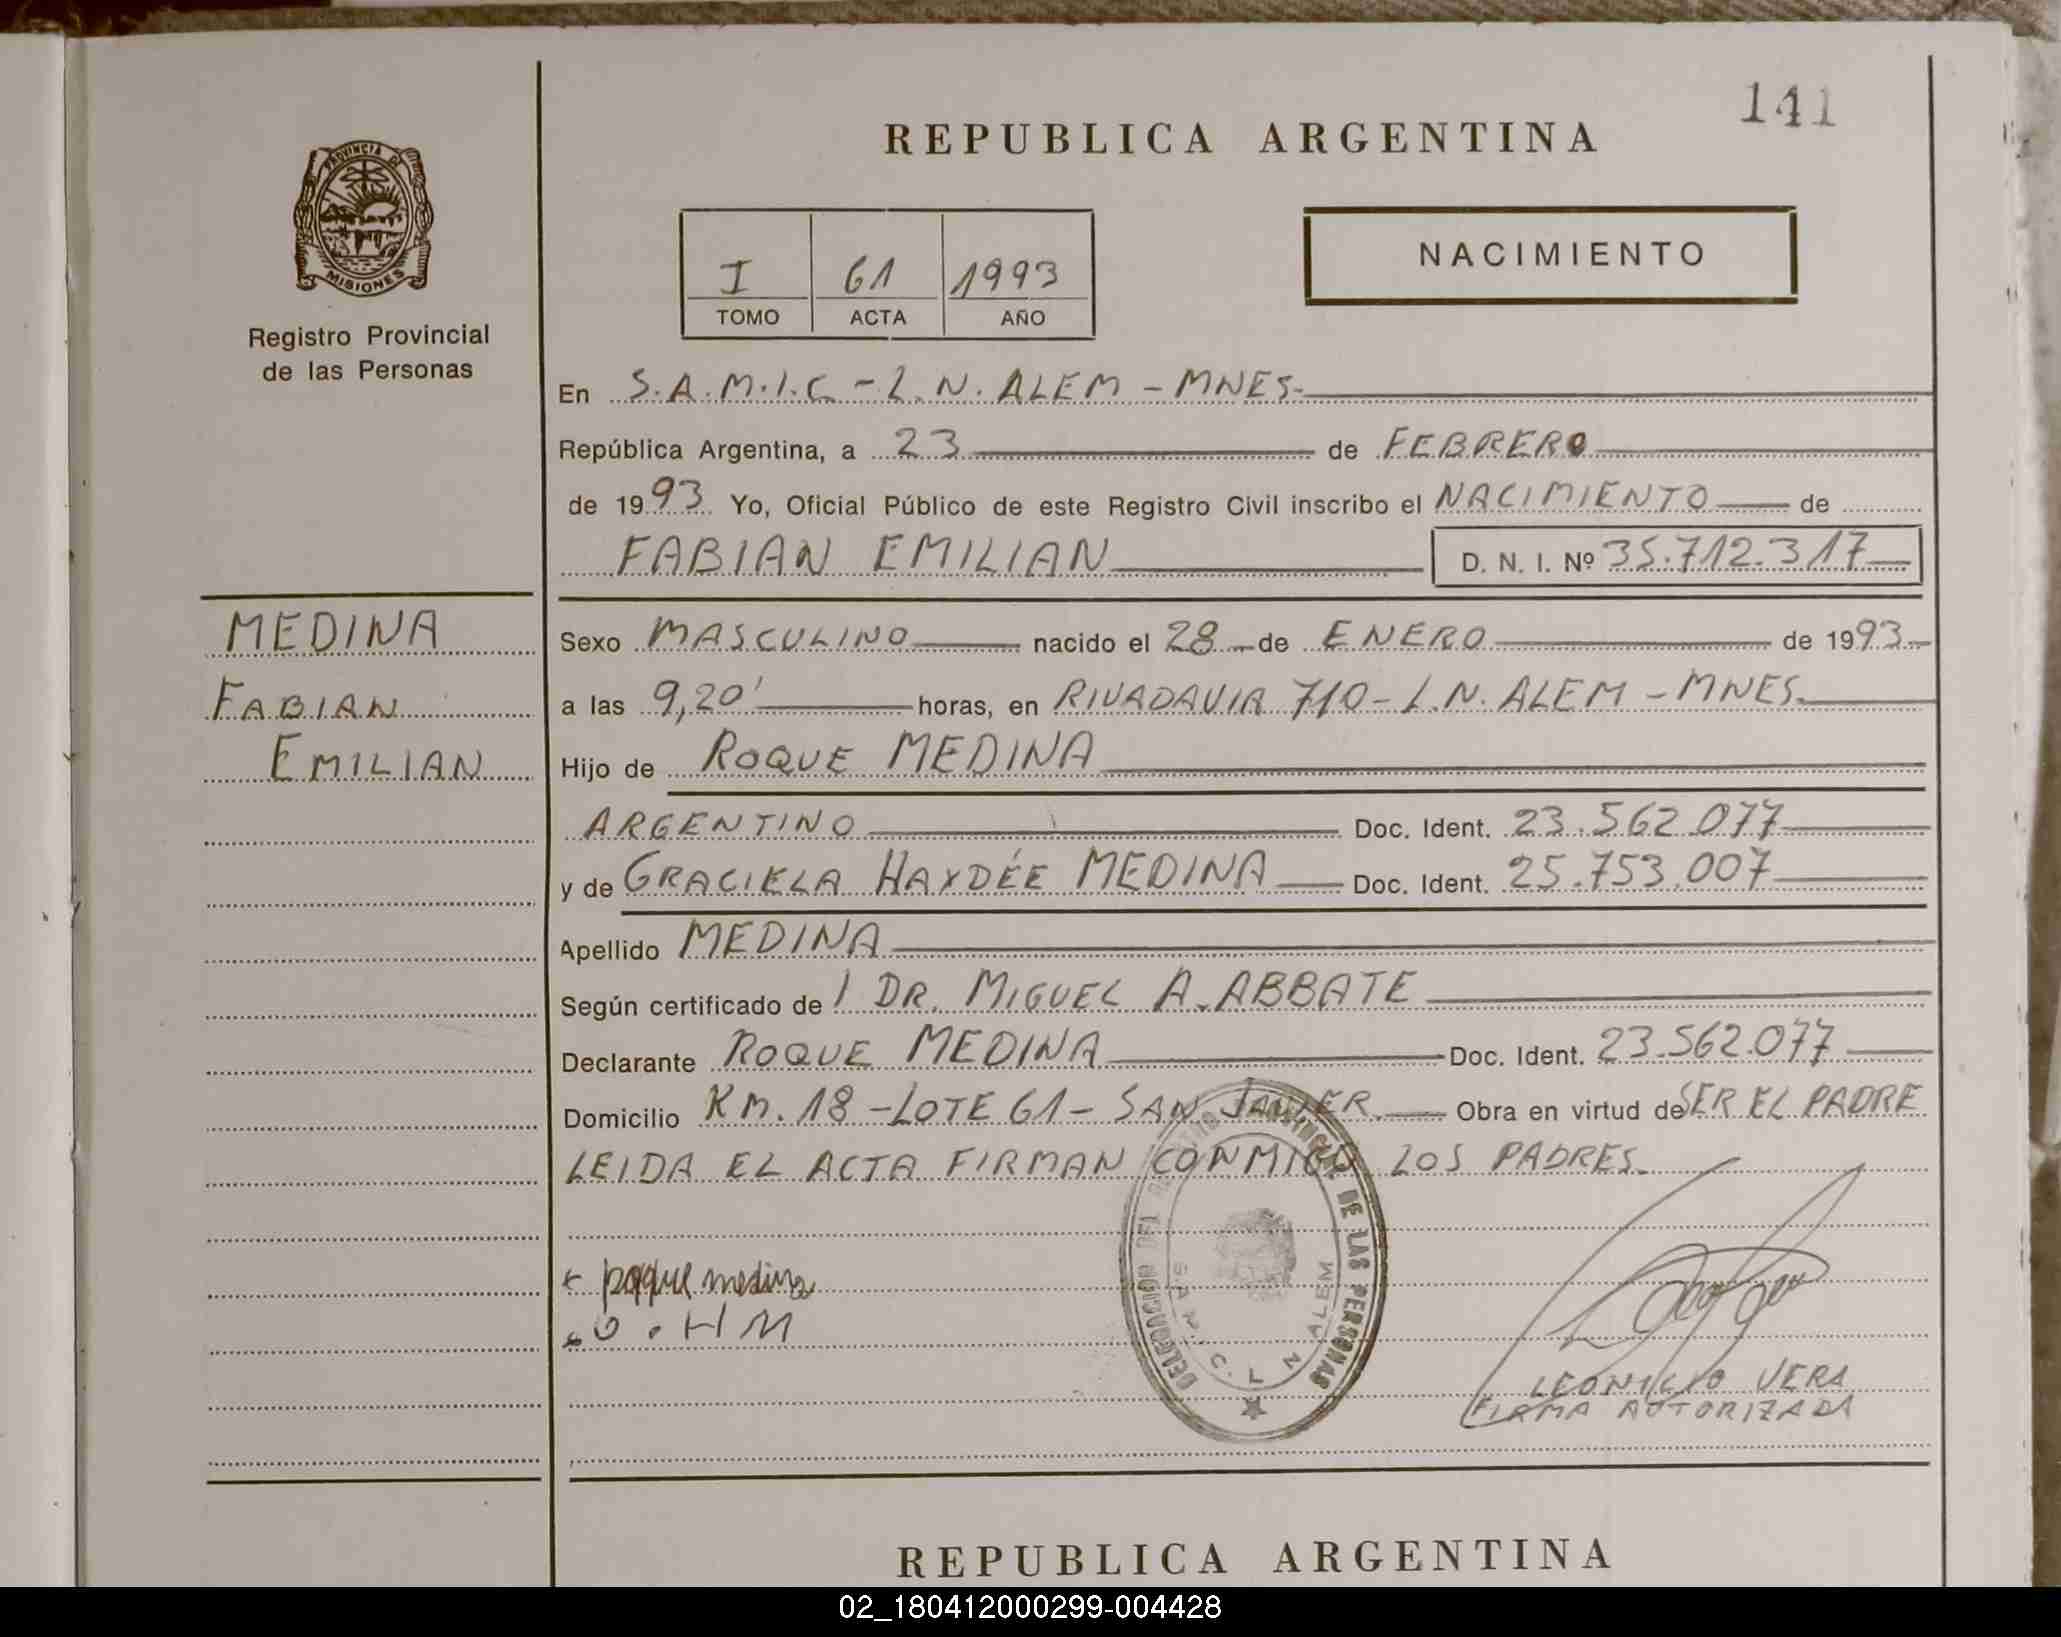 141
REPUBLICA ARGENTINA
PROVINCIA DE
MISIONES
Registro Provincial
de las Personas
I 61 1993
TOMO ACTA AÑO
NACIMIENTO
En S.A.M.I.C. - L.N. ALEM - MNES.
República Argentina, a 23 de FEBRERO
de 1993 Yo, Oficial Público de este Registro Civil inscribo el NACIMIENTO de
FABIAN EMILIAN D. N. I. Nº 35.712.317
MEDINA
FABIAN
EMILIAN
Sexo MASCULINO nacido el 28 de ENERO de 1993
a las 9,20' horas, en RIVADAVIA 710 - L.N. ALEM - MNES.
Hijo de ROQUE MEDINA
ARGENTINO Doc. Ident. 23.562.077
y de GRACIELA HAYDÉE MEDINA Doc. Ident. 25.753.007
Apellido MEDINA
Según certificado de l DR. MIGUEL A. ABBATE
Declarante ROQUE MEDINA Doc. Ident. 23.562.077
Domicilio KM. 18 - LOTE 61 - SAN JAVIER. Obra en virtud de SER EL PADRE
LEIDA EL ACTA FIRMAN CONMIGO LOS PADRES.
DELEGACION DEL REGISTRO PROVINCIAL DE LAS PERSONAS
L N ALEM
roque medina
H M
LEONICIO VERA
FIRMA AUTORIZADA
REPUBLICA ARGENTINA
02_180412000299-004428